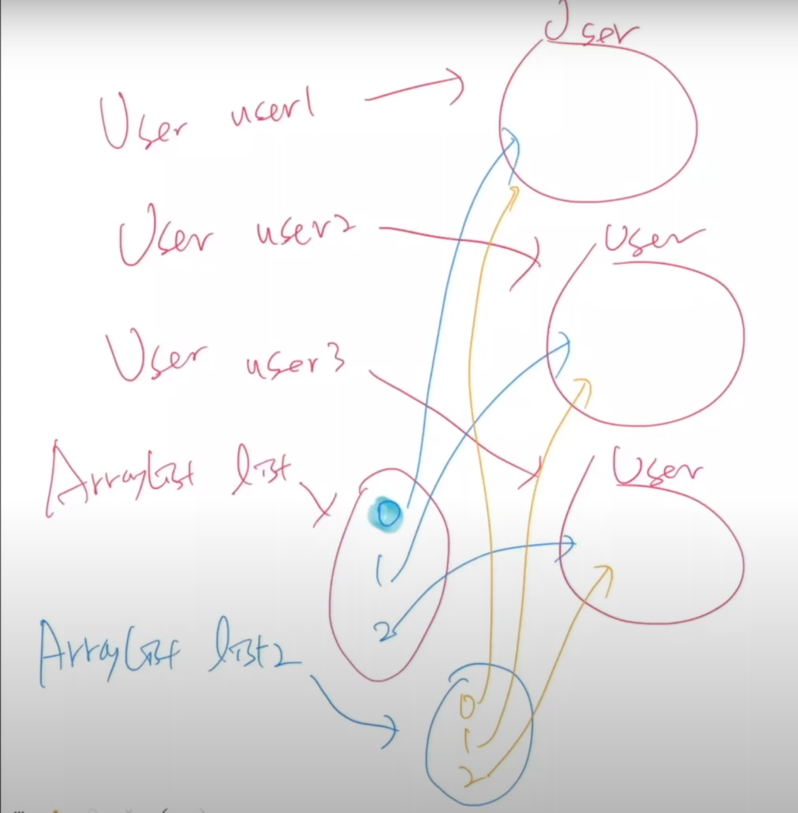 User
User user1
User user2
User
User user3
User
ArrayList list
0
1
2
ArrayList list2
0
1
2